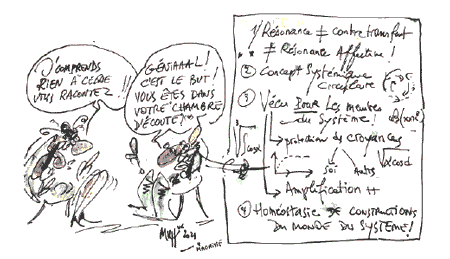 J'COMPRENDS
RIEN À CE QUE
VOUS RACONTEZ !!
GÉNIAAAL !
C'EST LE BUT !
VOUS ÊTES DANS
VOTRE "CHAMBRE
D'ÉCOUTE"!
1/ Résonance ≠ contretransfert
** ≠ Résonance Affective !
② Concept Systémique
Circulaire
③ Vécu POUR les membres
du Système !
→ protection des croyances
Soi Autres
→ Amplification ++
④ Homéostasie DE CONSTRUCTIONS
DU MONDE DU SYSTÈME !
2021